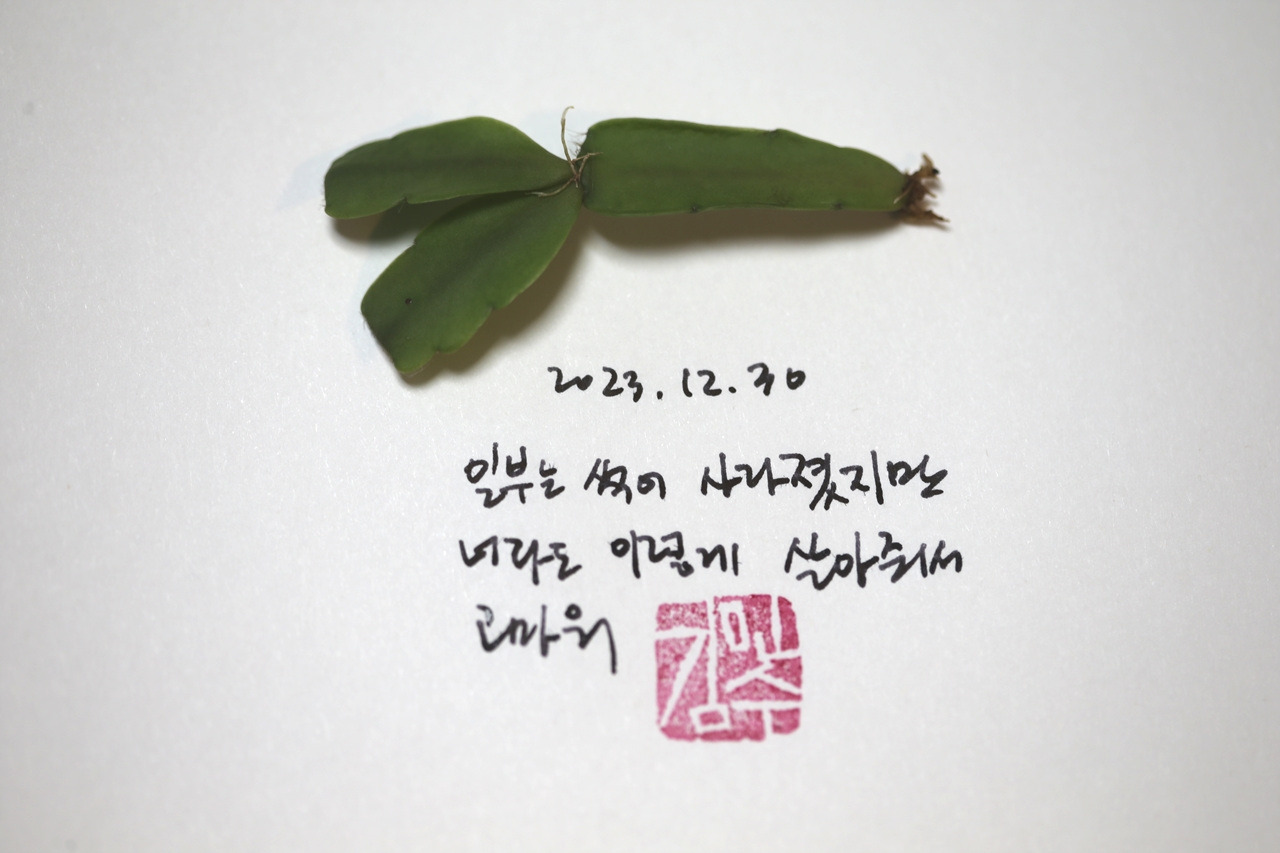 2023.12.30
일부는 썩어 사라졌지만
너라도 이렇게 살아줘서
고마워